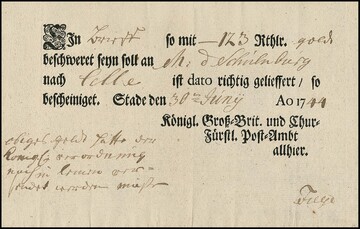 Ein Brieff so mit 123 Rthlr. goldt
beschweret seyn solt an M. d Schulenburg
nach Celle ist dato richtig gelieffert / so
bescheiniget. Stade den 30ten Junÿ Ao 1744
Königl. Groß-Brit. und Chur-
Fürstl. Post-Ambt
allhier.
obiges goldt hatte den
Königs verordnung
nach in
werden